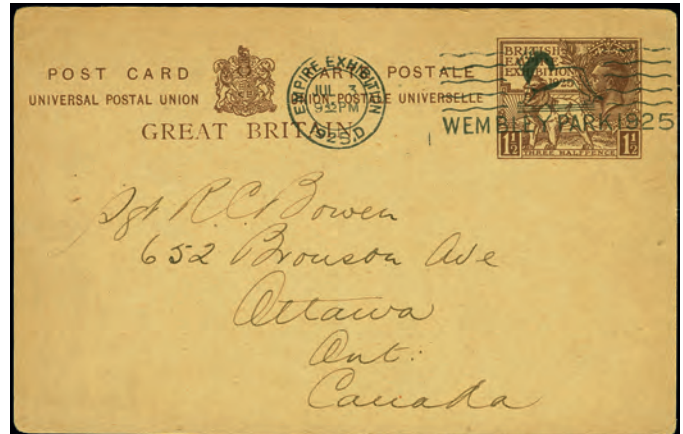 POST CARD CARTE POSTALE
UNIVERSAL POSTAL UNION UNION POSTALE UNIVERSELLE
GREAT BRITAIN
EMPIRE EXHIBITION
JUL 3
932PM
1925.D
WEMBLEY PARK 1925
BRITISH
EMPIRE
EXHIBITION
1925
1½ THREE HALFPENCE 1½
Sgt R.C. Bowen
652 Bronson Ave
Ottawa
Ont:
Canada